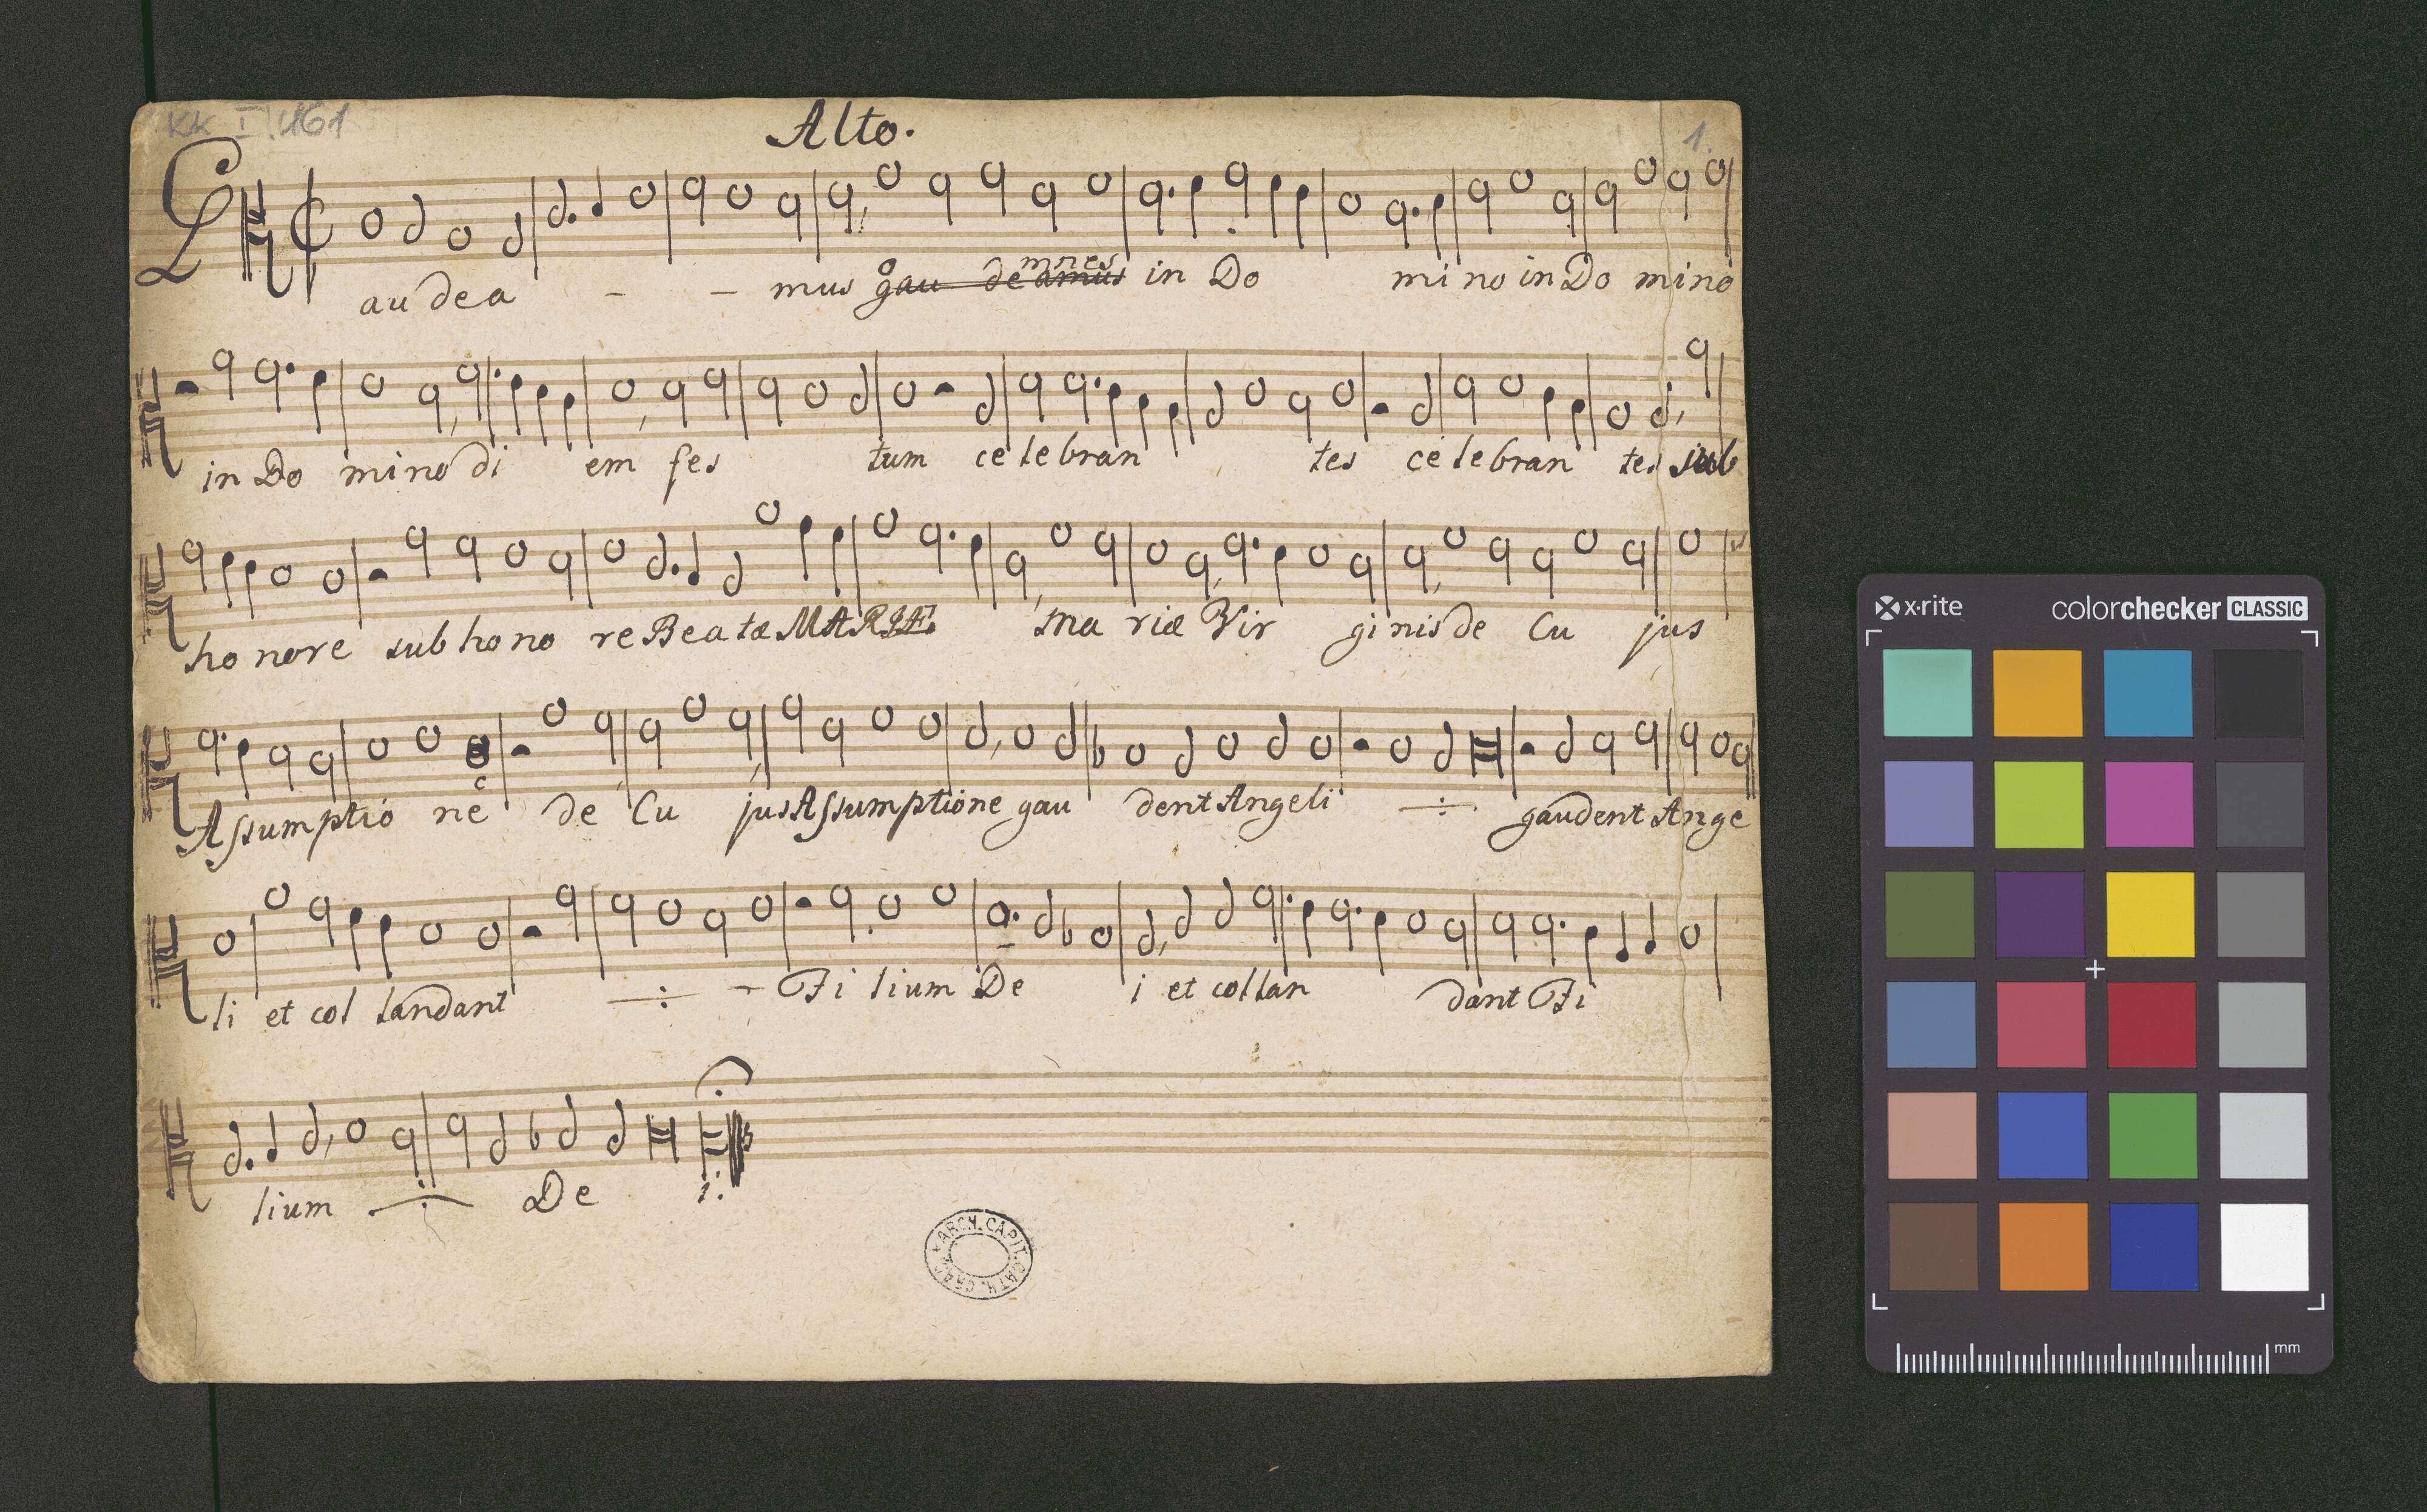 KK I 161
1.
Alto.
G au de a - - mus gau de amus in Do mi no in Do mino
omnes
in Do mino di em fes tum ce le bran tes ce le bran tes sub
ho nore sub ho no re Beatæ MARIÆ Ma riæ Vir ginis de Cu jus
Assumptio ne de Cu jus Assumptione gau dent Angeli ÷ gaudent Ange
li et col laudant ÷ - Fi lium De i et collau dant Fi
lium ÷ De i:
ARCH. CAPIT. CATH. CRAC.
x-rite colorchecker CLASSIC
mm